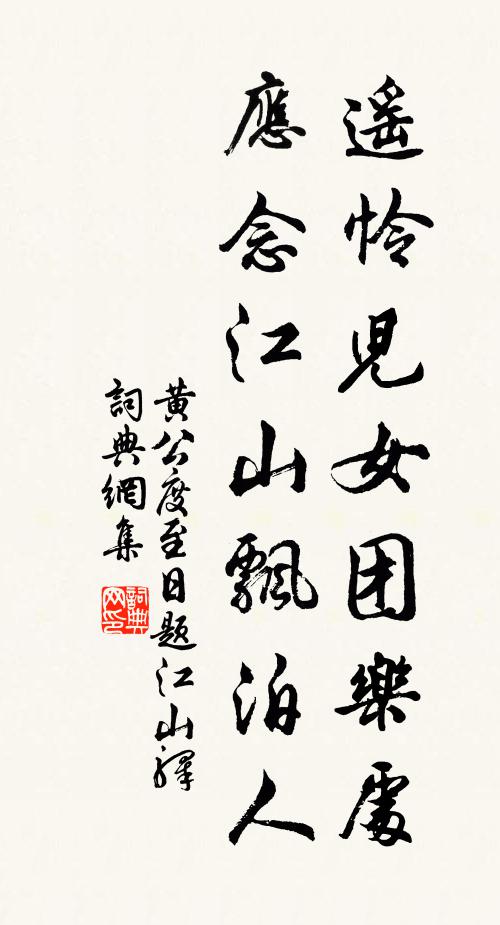 遥憐児女团樂處
應念江山飄泊人
黄公度至日题江山驛
詞典網集
詞典网印